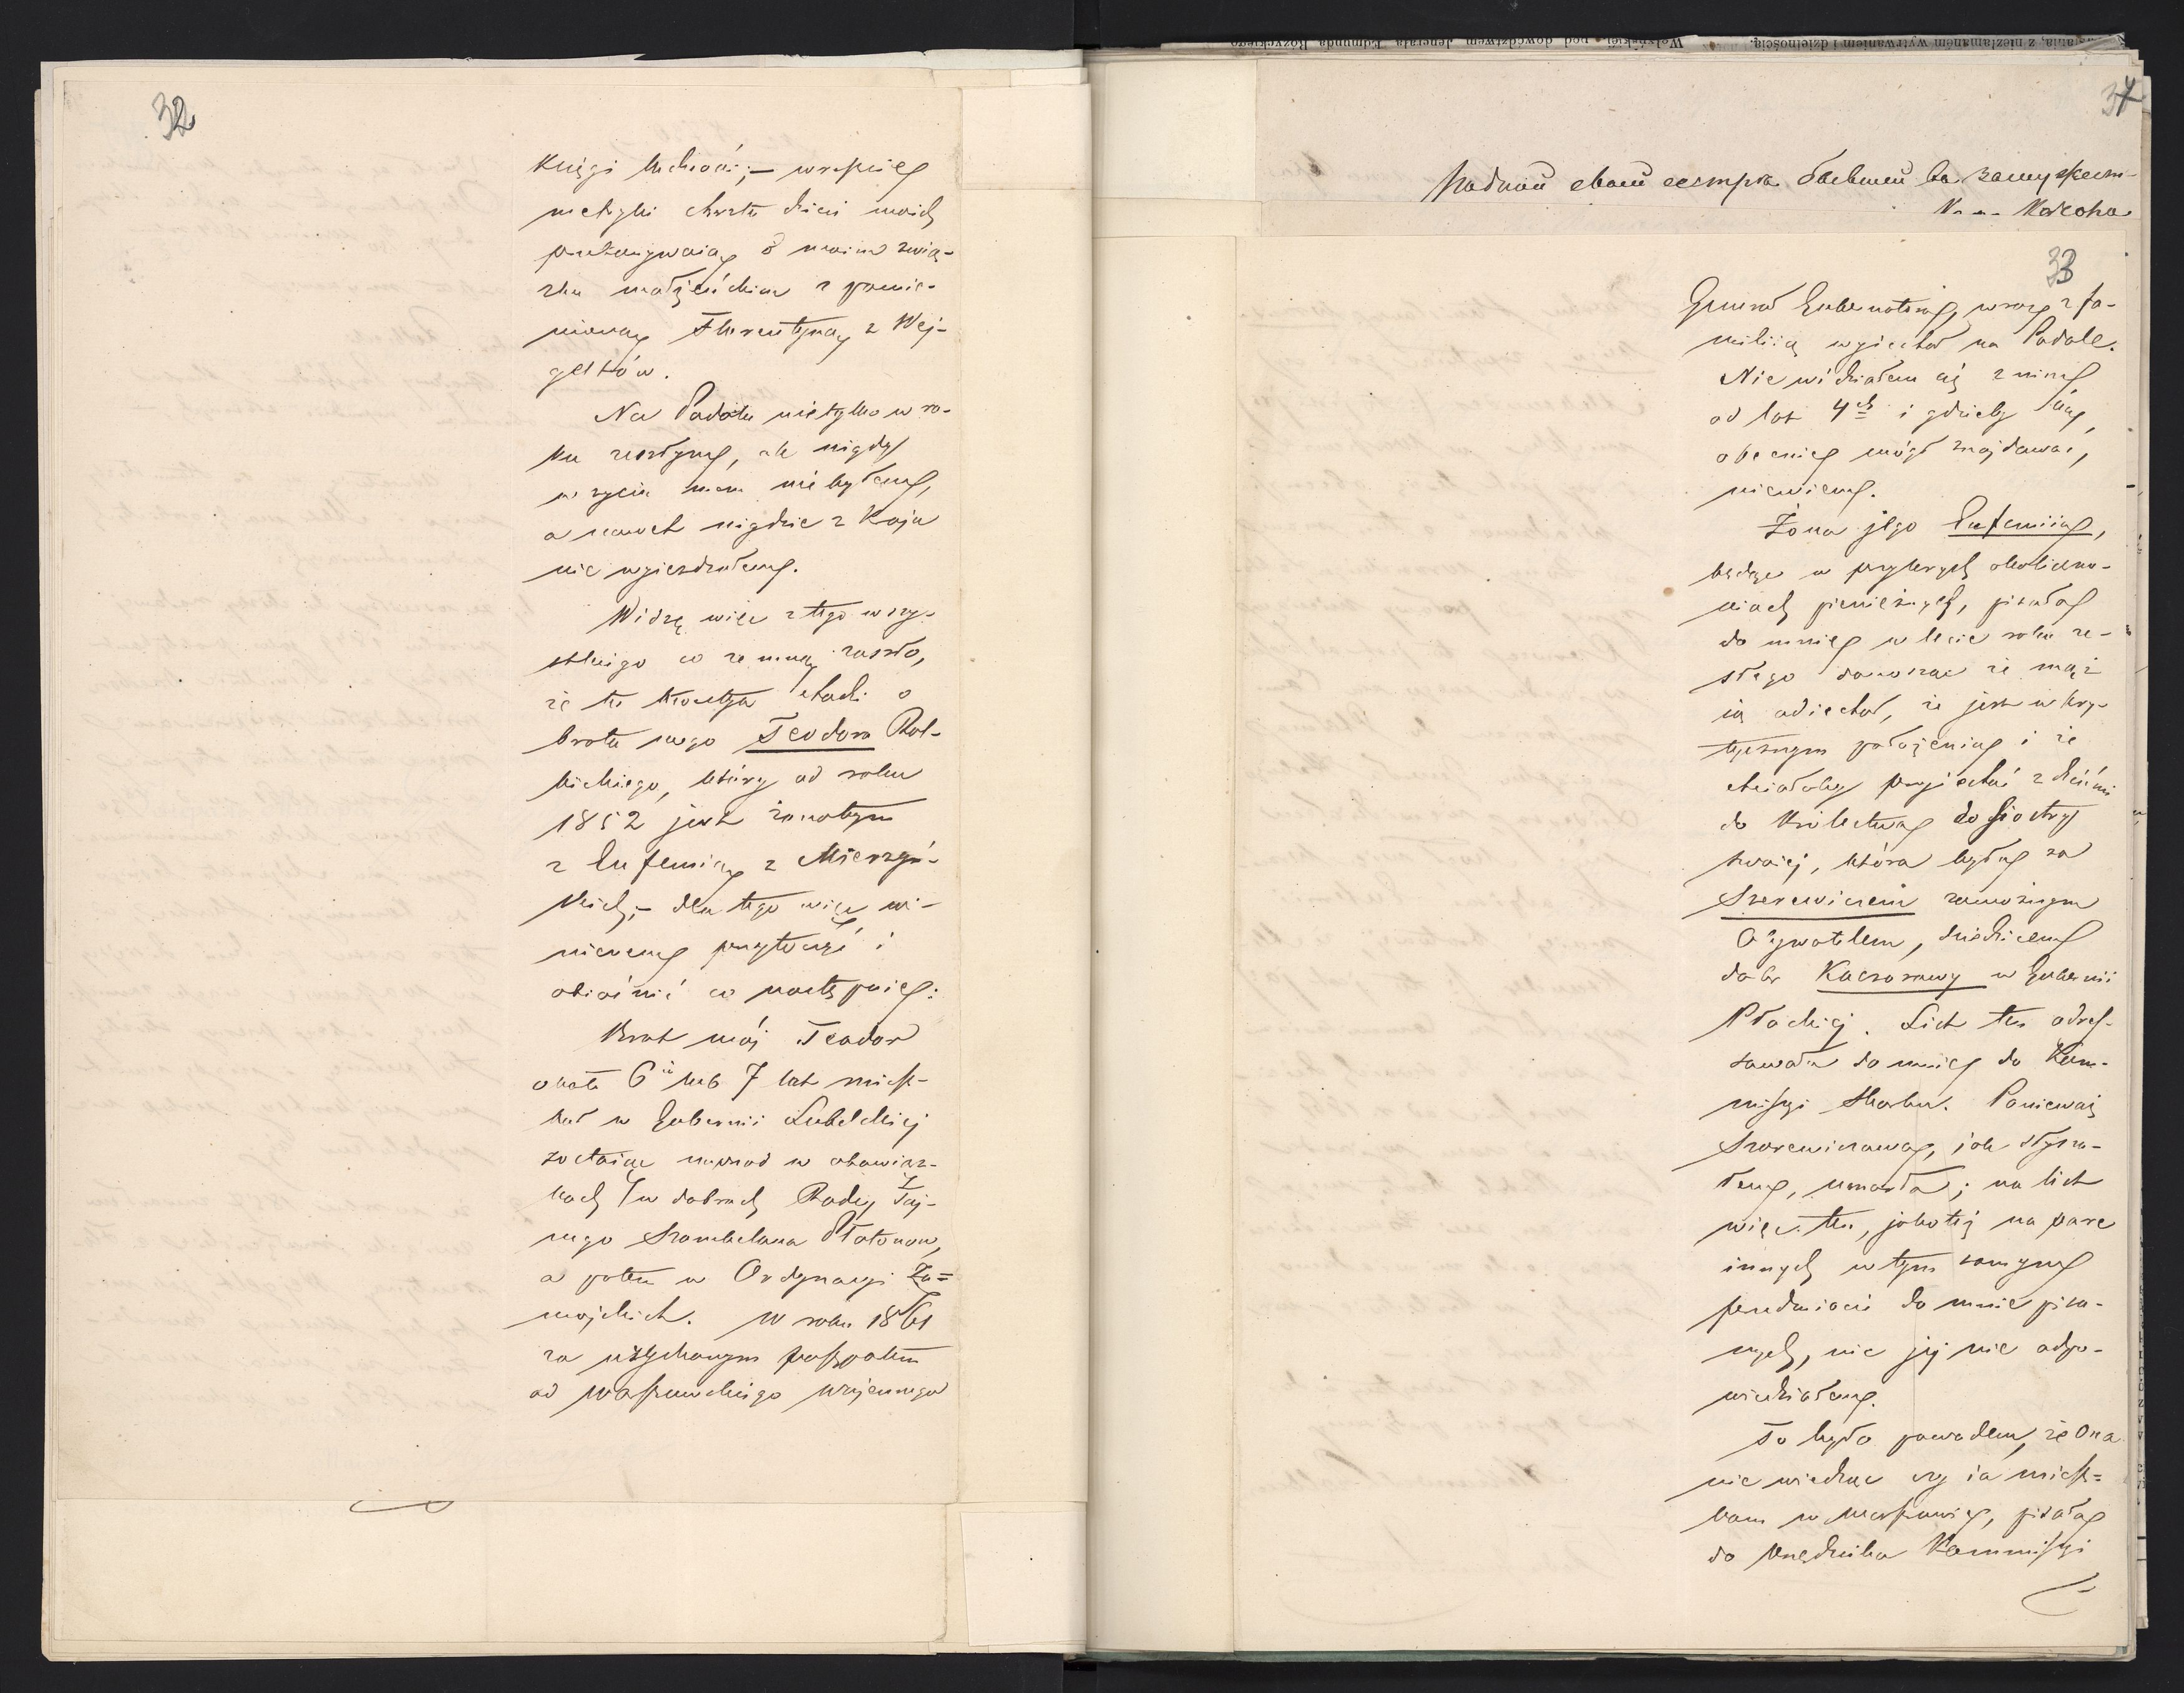 32
Księgi ludności; – wreszcie
metryki chrztu dzieci moich
przekonywaią o moim zwią-
zku małżeńskim z pomie-
nioną Florentyną z Wej-
geltów.
Na Podolu nietylko w ro-
ku zeszłym, ale nigdy
w życiu mem nie byłem,
a nawet nigdzie z Kraju
nie wyjeżdżałem.
Widzę więc z tego wszy-
stkiego co ze mną zaszło,
że tu kwestya chodzi o
brata mego Teodora Rol-
bickiego, który od roku
1852 jest żonatym
z Eufemią z Mierzyń-
skich; – dla tego więc wi-
nienem przytoczyć i
obiaśnić co następuie:
Brat mój Teodor
około 6iu lub 7 lat miesz-
kał w Gubernii Lubelskiej
zostaiąc naprzód w obowiąz-
kach w dobrach Radcy Taj-
nego Szambelana Płatonow,
a potem w Ordynacyi Za=
mojskich. W roku 1861
za uzyskanym paszportem
od Warszawskiego Wojennego
34
родной своей сестры бывшей въ замужест-
33
Generał Gubernatora, wraz z fa-
miliią wyjechał na Podole.
Nie widziałem się z nim
od lat 4ch i gdzieby się,
obecnie mógł znajdować,
niewiem.
Żona jego Eufemiia,
będąc w przykrych okoliczno-
ściach pieniężnych, pisała
do mnie w lecie roku ze-
szłego donosząc że mąż
ią odiechał, że jest w kry-
tycznym położeniu i że
chciałaby przyjechać z dziećmi
do Królestwa do Siostry
swoiej, która była za
Szerewiczem zamożnym
Obywatelem, dziedzicem
dóbr Kaczorowy w Gubernii
Płockiej. List ten adres-
sowała do mnie do Kom-
missyi Skarbu. Ponieważ
Szerewiczowa, jak słysza-
łem, umarła; na list
więc ten, jakoteż na parę
innych w tym samym
przedmiocie do mnie pisa-
nych, nic jej nie odpo-
wiedziałem.
To było powodem, że Ona
nie wiedząc czy ia miesz=
kam w Warszawie, pisała
do Urzędnika Kommissyi